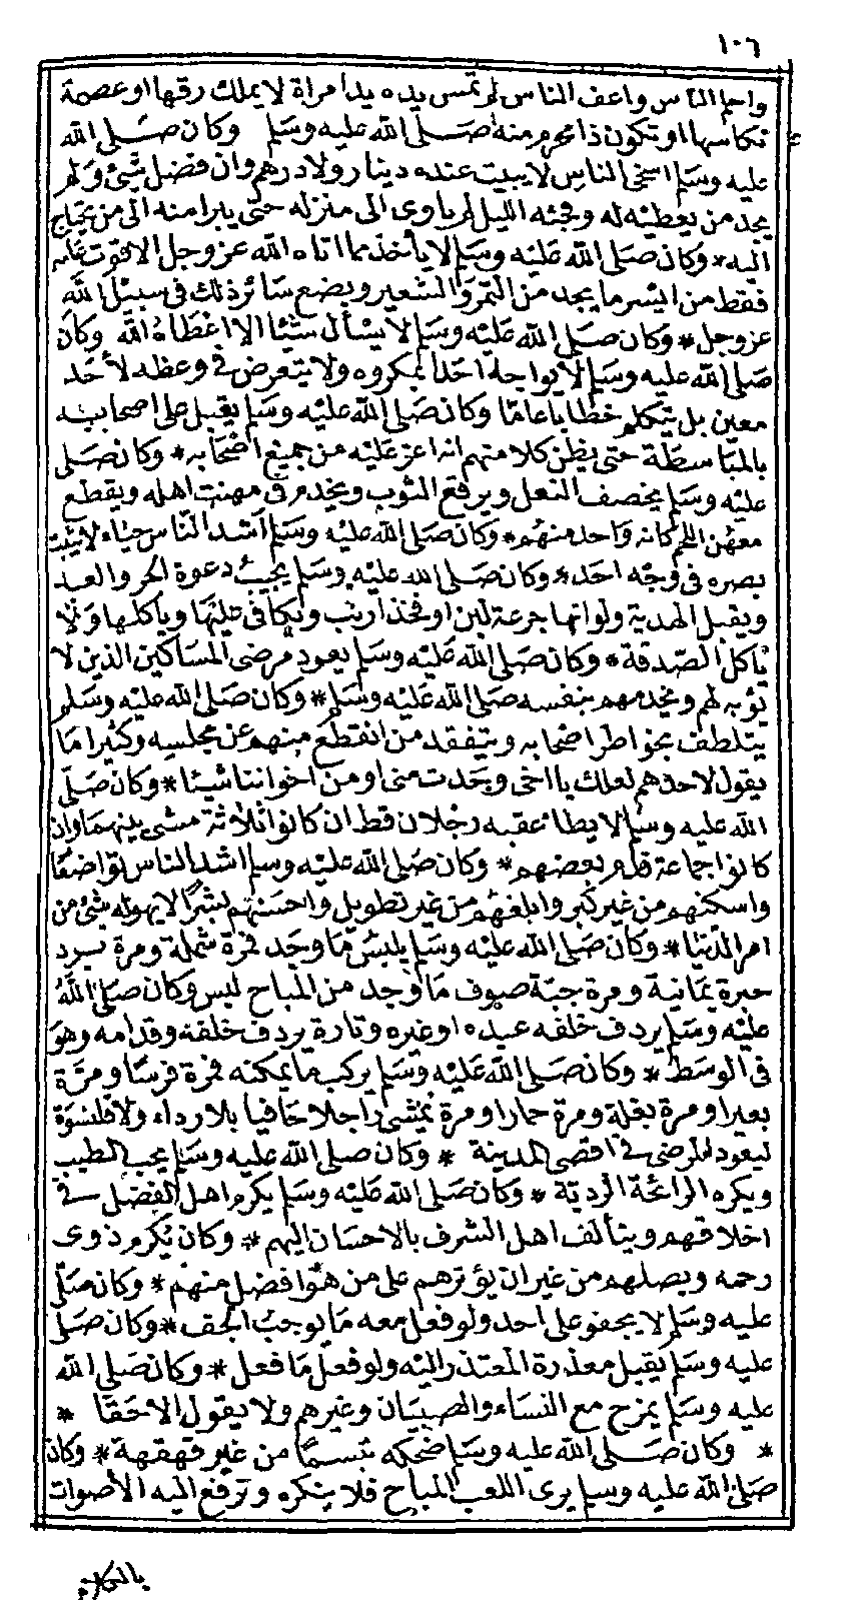 ١٠٦
واحلم الناس واعف الناس لم تمس يده يد امراة لا يملك رقها او عصمة
نكاحها او تكون ذا محرم منه صلى الله عليه وسلم وكان صلى الله
عليه وسلم اسخى الناس لا يبيت عنده دينار ولا درهم وان فضل شئ ولم
يجد من يعطيه له وفجئه الليل لم ياوى الى منزله حتى يبرا منه الى من يحتاج
اليه * وكان صلى الله عليه وسلم لا يأخذ مما اتاه الله عز وجل الا قوت عامه
فقط من ايسر ما يجد من التمر والشعير ويضع سائر ذلك فى سبيل الله
عز وجل * وكان صلى الله عليه وسلم لا يسأل شيئا الا اعطاه الله وكان
صلى الله عليه وسلم لا يواجه احدا بمكروه ولا يتعرض فى وعظه لأحد
معين بل يتكلم خطابا عاما وكان صلى الله عليه وسلم يقبل على اصحابه
بالمباسطة حتى يظن كلا منهم انه اعز عليه من جميع اصحابه * وكان صلى
عليه وسلم يخصف النعل ويرقع الثوب ويخدم فى مهنت اهله ويقطع
معهن اللحم كانه واحد منهم * وكان صلى الله عليه وسلم اشد الناس حياء لا يثبت
بصره فى وجه احد * وكان صلى الله عليه وسلم يجيب دعوة الحر والعبد
ويقبل الهدية ولو انها جرعة لبن او فخذ ارنب ويكافى عليها وياكلها ولا
يأكل الصدقة * وكان صلى الله عليه وسلم يعود مرضى المساكين الذين لا
يؤبه لهم ويخدمهم بنفسه صلى الله عليه وسلم * وكان صلى الله عليه وسلم
يتلطف بخواطر اصحابه ويتفقد من انقطع منهم عن مجلسه وكثيرا ما
يقول لاحدهم لعلك يا اخى وجدت منى او من اخواننا شيئا * وكان صلى
الله عليه وسلم لا يطا عقبه رجلان قط ان كانوا ثلاثة مشى بينهما وان
كانوا جماعة قدم بعضهم * وكان صلى الله عليه وسلم اشد الناس تواضعا
واسكنهم من غير كبر وابلغهم من غير تطويل واحسنهم بشرا لا يهوله شئ من
امر الدنيا * وكان صلى الله عليه وسلم يلبس ما وجد فمرة شملة ومرة برد
حبرة يمانية ومرة جبة صوف ما وجد من المباح لبس وكان صلى الله
عليه وسلم يردف خلفه عبده او غيره وتارة يردف خلفه وقدامه وهو
فى الوسط * وكان صلى الله عليه وسلم يركب ما يمكنه فمرة فرسا ومرة
بعيرا ومرة بغلة ومرة حمارا ومرة يمشى راجلا حافيا بلا رداء ولا قلنسوة
ليعود المرضى فى اقصى المدينة * وكان صلى الله عليه وسلم يحب الطيب
ويكره الرائحة الردية * وكان صلى الله عليه وسلم يكرم اهل الفضل فى
اخلاقهم ويتألف اهل الشرف بالاحسان اليهم * وكان يكرم ذوى
رحمه ويصلهم من غير ان يؤثرهم على من هو افضل منهم * وكان صلى
عليه وسلم لا يجفو على احد ولو فعل معه ما يوجب الجفا * وكان صلى
عليه وسلم يقبل معذرة المعتذر اليه ولو فعل ما فعل * وكان صلى الله
عليه وسلم يمزح مع النساء والصبيان وغيرهم ولا يقول الا حقا *
* وكان صلى الله عليه وسلم ضحكه تبسما من غير قهقهة * وكان
صلى الله عليه وسلم يرى اللعب المباح فلا ينكره وترفع اليه الأصوات
بالكلام